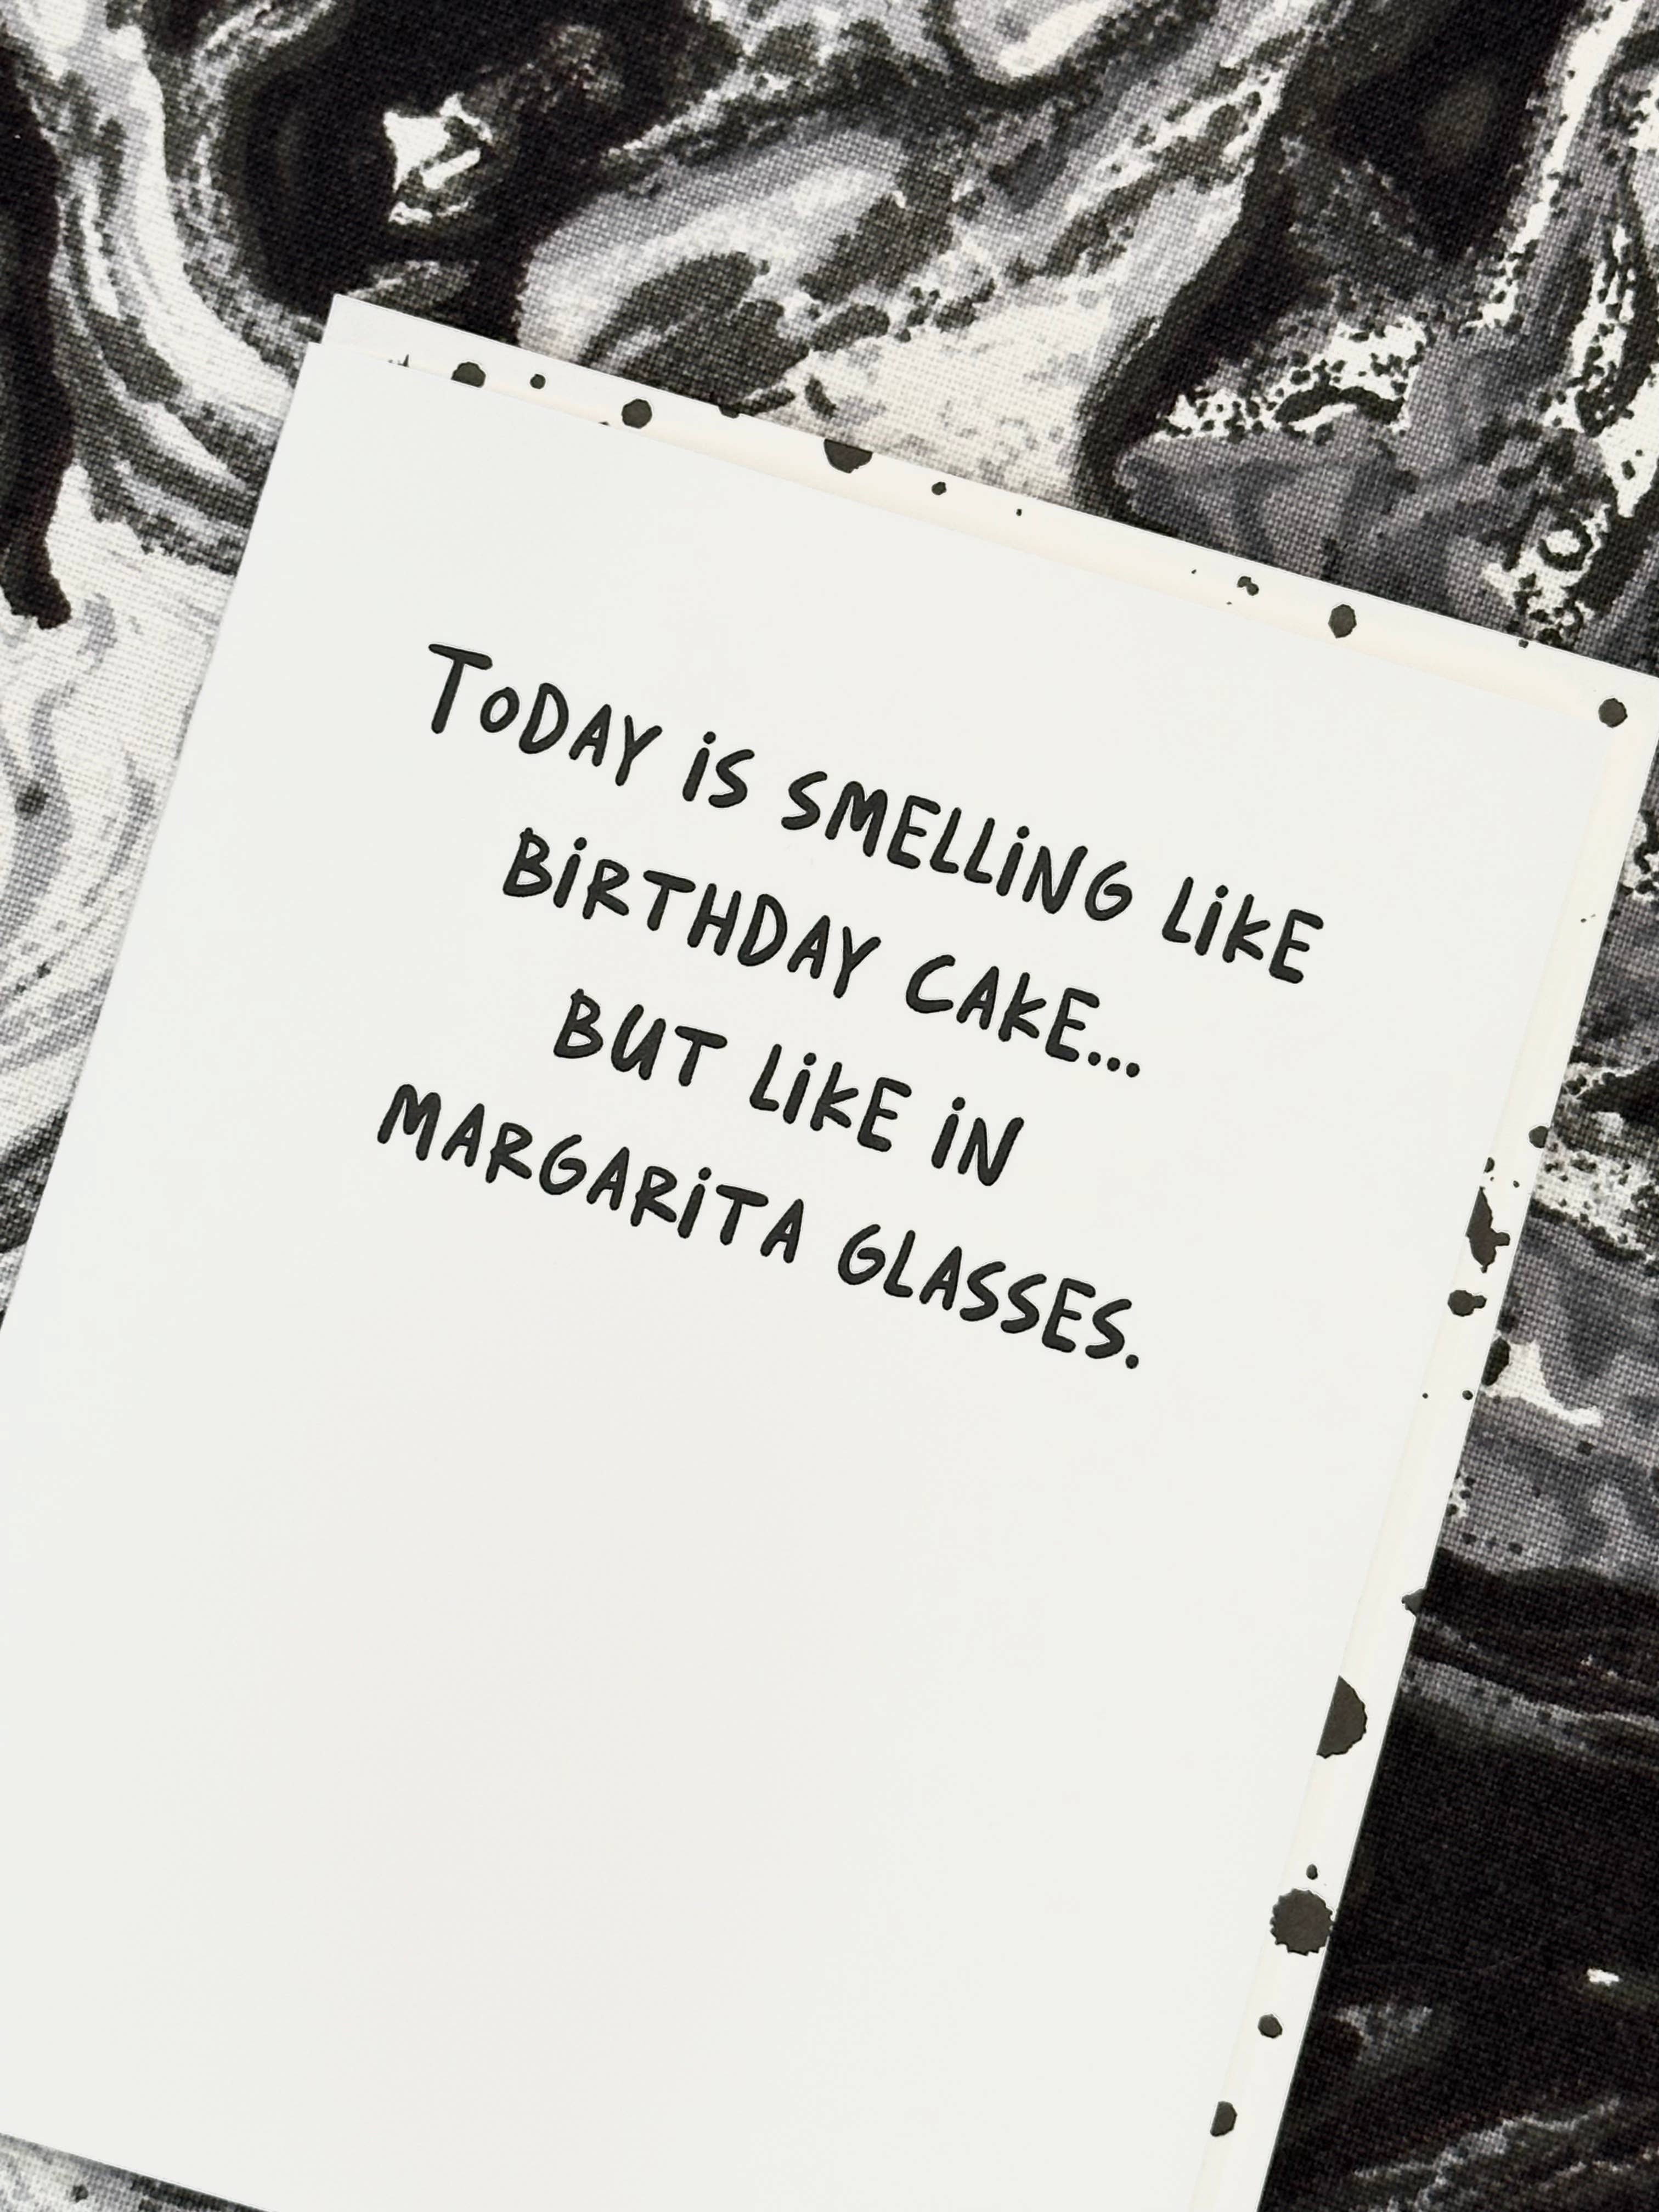 TODAY iS SMELLiNG LiKE
BiRTHDAY CAKE...
BUT LiKE iN
MARGARiTA GLASSES.